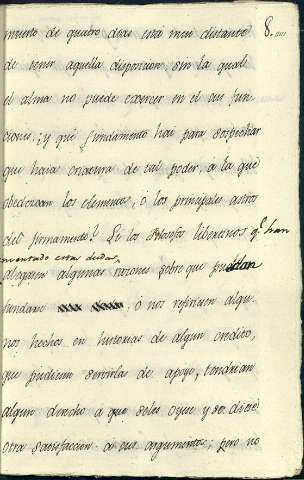 8.
miento de quatro dias está mui distante
de tener aquella disposicion, sin la qual
el alma no puede exercer en el sus fun-
ciones: ¿y qué fundamento hai para sospechar
que haia criatura de tal poder, a la que
obedezcan los elementos, ó los principales astros
del firmamento? Si los Filosofos libertinos qe. han
mentado estas dudas,
alegasen algunas razones sobre que puedan
fundarse ó nos refiriesen algu-
nos hechos en historias de algun credito,
que pudiesen servirlas de apoyo, tendrian
algun derecho á que se les oyese y se diese
otra satisfaccion á sus argumentos; pero no